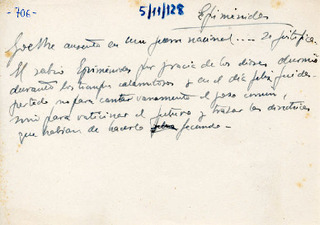 -706-
5/11/128
Epiménides
Goethe ausente en una guerra nacional..... lo justifica.
El sabio Epiménides por gracia de los dioses durmió
durante los tiempos calamitosos y en el día feliz fué des-
pertado no para cantar vanamente el gozo común,
sinó para vaticinar el futuro y trazar las directrices
que habían de hacerlo fecundo.-